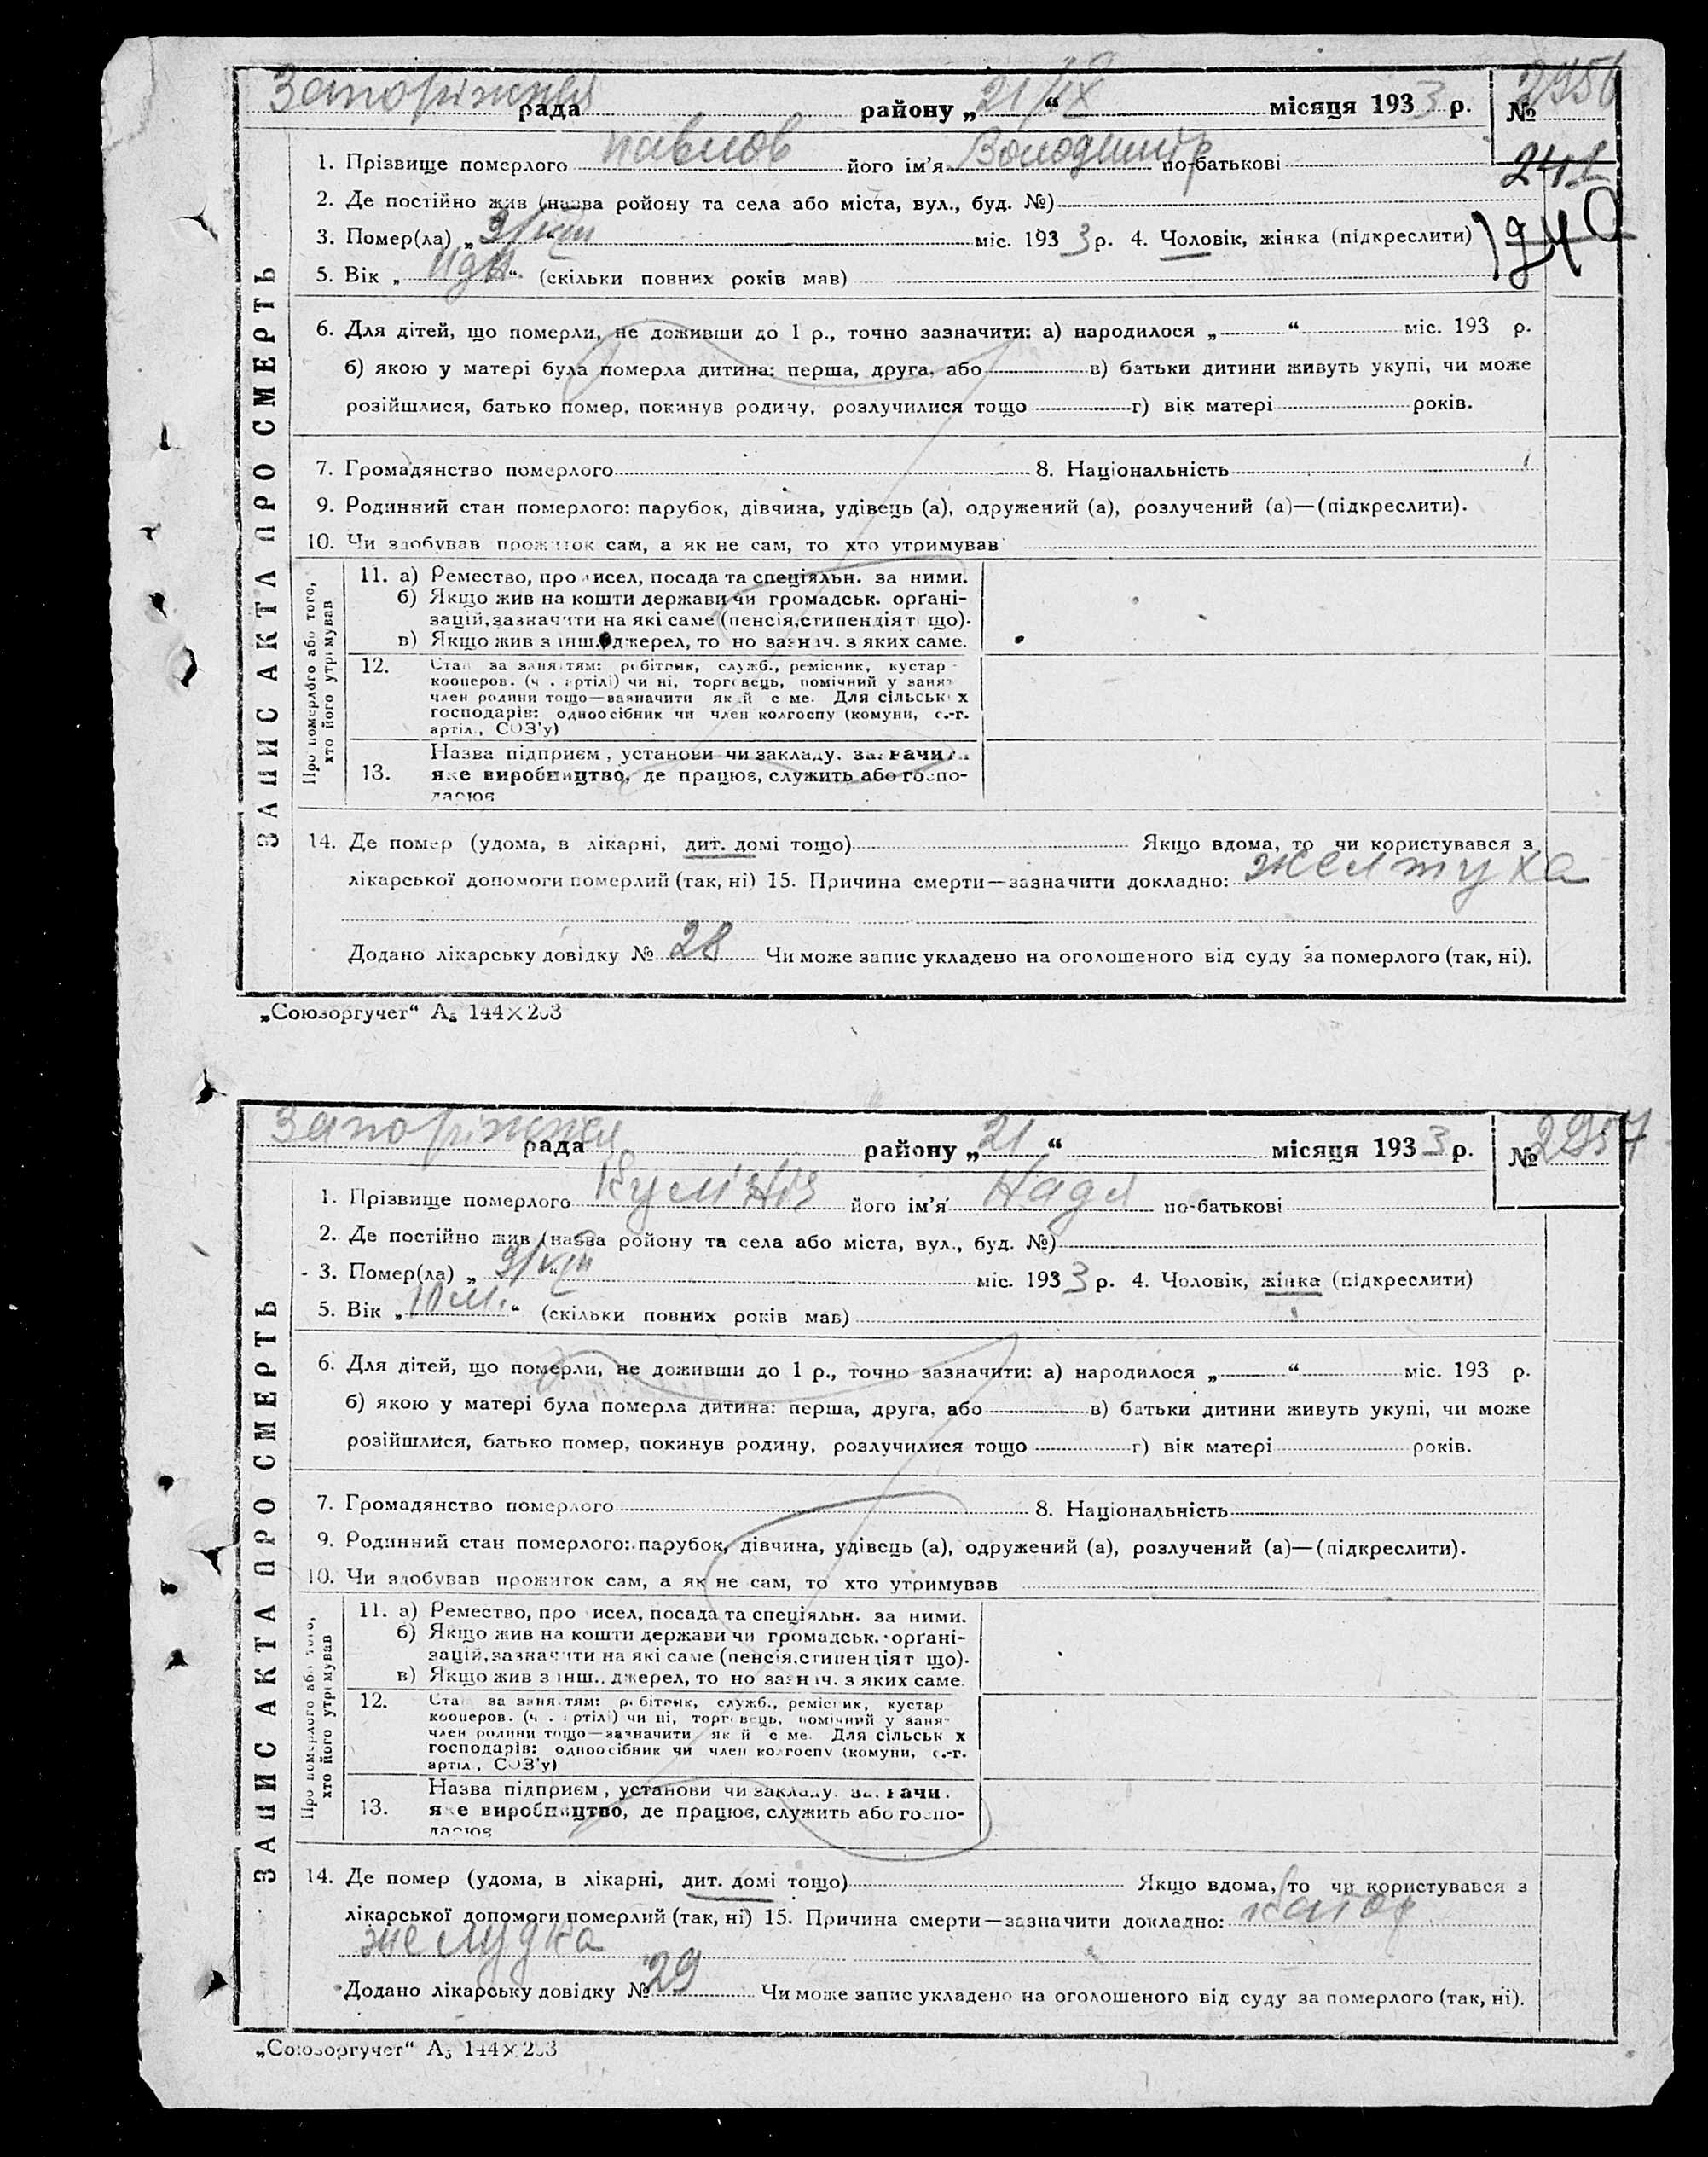 Запоріжжя рада району „21/IX“ місяця 1933 р. № 2956
1. Прізвище померлого Павлов його ім’я Володимир по-батькові
241
2. Де постійно жив (назва ройону та села або міста, вул., буд. №)
3. Помер(ла) „9/VIII“ міс. 1933 р. 4. Чоловік, жінка (підкреслити)
1940
5. Вік „11 дн.“ (скільки повних років мав)
6. Для дітей, що померли, не доживши до 1 р., точно зазначити: а) народилося „ “ міс. 193 р.
б) якою у матері була померла дитина: перша, друга, або в) батьки дитини живуть укупі, чи може
розійшлися, батько помер, покинув родину, розлучилися тощо г) вік матері років.
7. Громадянство померлого 8. Національність
9. Родинний стан померлого: парубок, дівчина, удівець (а), одружений (а), розлучений (а)—(підкреслити).
10. Чи здобував прожиток сам, а як не сам, то хто утримував
ЗАПИС АКТА ПРО СМЕРТЬ
Про померлого або того,
хто його утримував
11. а) Ремество, про исел, посада та спеціяльн. за ними.
б) Якщо жив на кошти держави чи громадськ. орґані-
зацій, зазначити на які саме (пенсія, стипендія т що).
в) Якщо жив з інш. джерел, то но зазнач. з яких саме.
12. Стан за заняттям: робітник, служб., ремісник, кустар
кооперов. (ч . артілі) чи ні, торговець, помічний у занят
член родини тощо—зазначити як й с ме. Для сільськ х
господарів: одноосібник чи член колгоспу (комуни, с.-г.
артіл., СОЗ’у)
13. Назва підприєм , установи чи закладу. зазначити
яке виробництво, де працює, служить або госпо-
дарює
14. Де помер (удома, в лікарні, дит. домі тощо) Якщо вдома, то чи користувався з
лікарської допомоги померлий (так, ні) 15. Причина смерти—зазначити докладно: желтуха
Додано лікарську довідку № 28 Чи може запис укладено на оголошеного від суду за померлого (так, ні).
„Союзоргучет“ А₅ 144×203
Запоріжжя рада району „21“ місяця 1933 р. № 2957
1. Прізвище померлого його ім’я Надя по-батькові
2. Де постійно жив (назва ройону та села або міста, вул., буд. №)
3. Помер(ла) „9/VIII“ міс. 1933 р. 4. Чоловік, жінка (підкреслити)
5. Вік „10 м.“ (скільки повних років мав)
6. Для дітей, що померли, не доживши до 1 р., точно зазначити: а) народилося „ “ міс. 193 р.
б) якою у матері була померла дитина: перша, друга, або в) батьки дитини живуть укупі, чи може
розійшлися, батько помер, покинув родину, розлучилися тощо г) вік матері років.
7. Громадянство померлого 8. Національність
9. Родинний стан померлого: парубок, дівчина, удівець (а), одружений (а), розлучений (а)—(підкреслити).
10. Чи здобував прожиток сам, а як не сам, то хто утримував
ЗАПИС АКТА ПРО СМЕРТЬ
Про померлого або того,
хто його утримував
11. а) Ремество, про исел, посада та спеціяльн. за ними.
б) Якщо жив на кошти держави чи громадськ. орґані-
зацій, зазначити на які саме (пенсія, стипендія т що).
в) Якщо жив з інш. джерел, то но зазнач. з яких саме.
12. Стан за заняттям: робітник, служб., ремісник, кустар
кооперов. (ч . артілі) чи ні, торговець, помічний у занят
член родини тощо—зазначити як й с ме. Для сільськ х
господарів: одноосібник чи член колгоспу (комуни, с.-г.
артіл., СОЗ’у)
13. Назва підприєм , установи чи закладу. зазначи
яке виробництво, де працює, служить або госпо-
дарює
14. Де помер (удома, в лікарні, дит. домі тощо) Якщо вдома, то чи користувався з
лікарської допомоги померлий (так, ні) 15. Причина смерти—зазначити докладно: катар
желудка
Додано лікарську довідку № 29 Чи може запис укладено на оголошеного від суду за померлого (так, ні).
„Союзоргучет“ А₅ 144×203